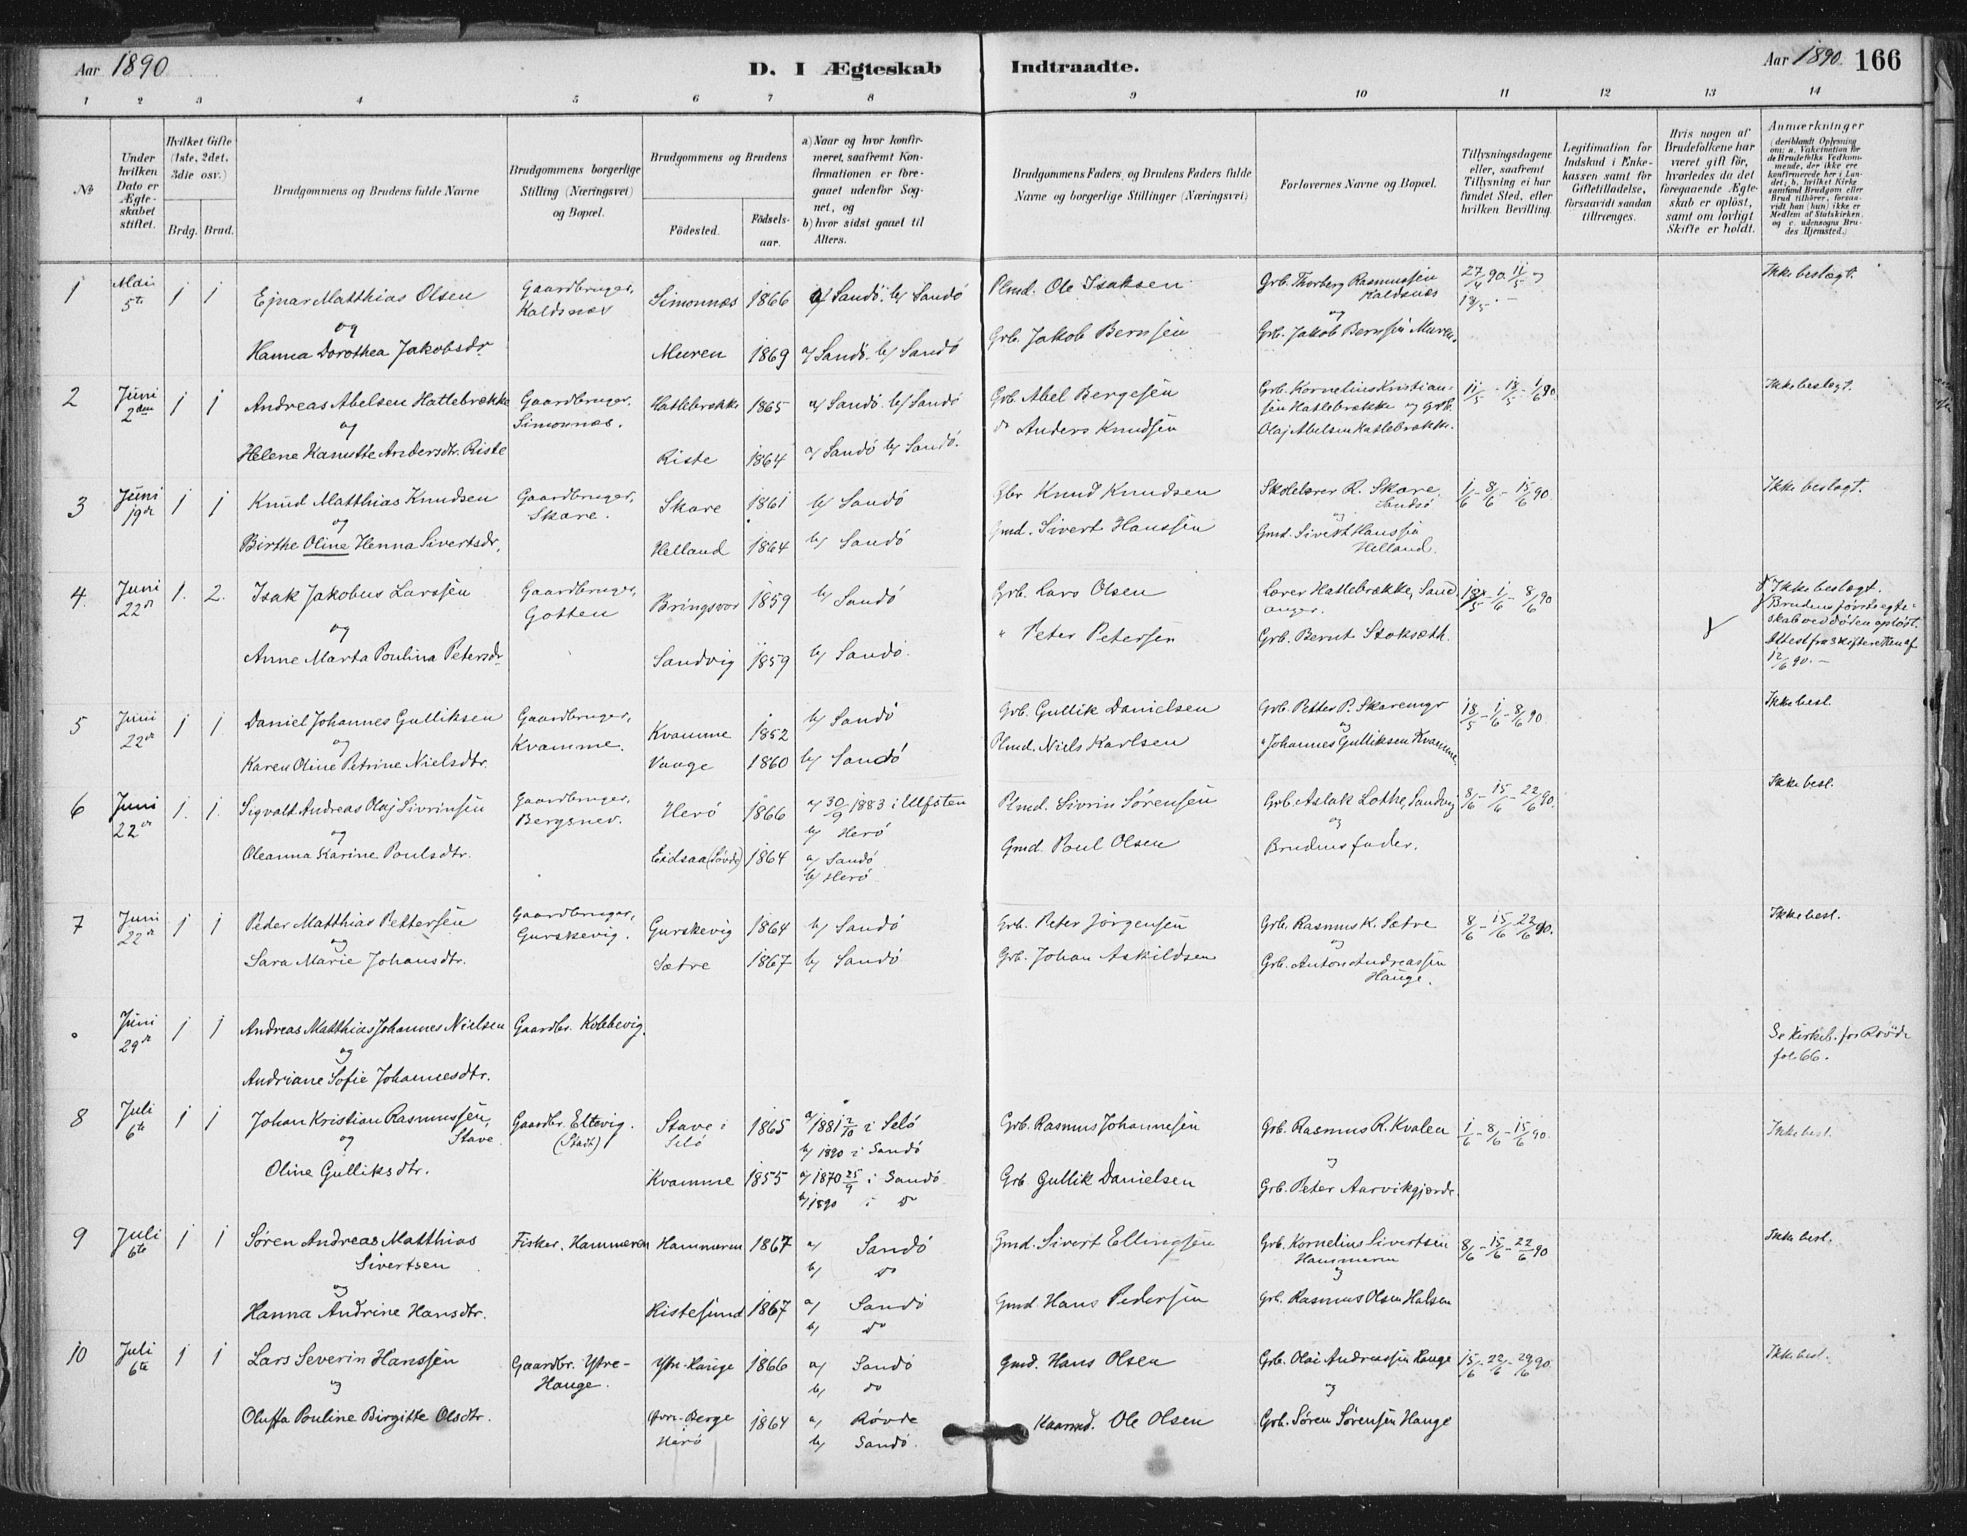 Aar 1890
D. I Ægteskab Indtraadte.
Aar 1890 166
1 2 3 4 5 6 7 8 9 10 11 12 13 14
No
Under hvilken Dato er Ægteskabet stiftet.
Hvilket Gifte (1ste, 2det, 3die osv.)
Brdg. Brud.
Brudgommens og Brudens fulde Navne
Brudgommens borgerlige Stilling (Næringsvei) og Bopæl.
Brudgommens og Brudens
Födested.
Födsels-aar.
a) Naar og hvor konfirmeret, saafremt Konfirmationen er foregaaet udenfor Sognet, og
b) hvor sidst gaaet til Alters.
Brudgommens Faders, og Brudens Faders fulde Navne og borgerlige Stillinger (Næringsvei)
Forlovernes Navne og Bopæl.
Tillysningsdagene eller, saafremt Tillysning ei har fundet Sted, efter hvilken Bevilling.
Legitimation for Indskud i Enkekassen samt for Giftetilladelse, forsaavidt saadan tiltrænges.
Hvis nogen af Brudefolkene har været gift før, hvorledes da det foregaaende Ægteskab er oplöst, samt om lovligt Skifte er holdt.
Anmærkninger (deriblandt Oplysning om: a. Vakcination for de Brudefolks Vedkommende, der ikke ere konfirmerede her i Landet; b. hvilket Kirkesamfund Brudgom eller Brud tilhörer, forsaavidt han (hun) ikke er Medlem af Statskirken, og c. udensogns Brudes Hjemsted.)
1 Mai 5te 1 1 Ejnar Matthias Olsen Gaardbruger, Koldsnæs Simonnæs 1866 a/ Sandö. b/ Sandö Plmd. Ole Isaksen Grb. Thorberg Rasmussen Koldsnæs 27/4 90 11/5 og 18/5 Ikke beslægt.
og
Hanna Dorothea Jakobsdr Muren 1869 a/ Sandö. b/ Sandö Grb. Jakob Bernsen og Grb. Jakob Bernsen Muren.
2 Juni 2den 1 1 Andreas Abelsen Hatlebrække Gaardbruger, Simonnæs. Hatlebrække 1865 a/ Sandö. b/ Sandö Grb. Abel Bergesen Grb. Kornelius Kristiansen Hatlebrække og Grb. Olaj Abelsen Hatlebrække. 11/5 - 18/5 - 1/6 90. Ikke beslægt.
og
Helene Hanutte Andersdtr. Riste Riste 1864 a/ Sandö b/ Sandö. do Anders Knudsen
3 Juni 19de 1 1 Knud Matthias Knudsen Gaardbruger, Skare. Skare 1861 b/ Sandö Gbr Knud Knudsen Skolelærer R. Skare, Sandsö 1/6 - 8/6 - 15/6 90 Ikke beslægt.
og
Birthe Oline Henna Sivertsdr, Helland 1864 b/ Sandö Gmd. Sivert Hanssen og Gmd. Sivert Hanssen Helland.
4. Juni 22de 1. 2. Isak Jakobus Larssen Gaardbruger, Gotten Bringsvor 1859 b/ Sandö Grb. Lars Olsen Lærer Hatlebrække, Sandanger. 18/5 - 1/6 - 8/6 90 Ikke beslægt. Brudens første egteskab ved døden opløst. Attest fra skifteretten af 12/6 90. -
og
Anne Marta Poulina Petersdr Sandvig 1859 b/ Sandö. " Peter Petersen Grb. Bernt Stokseth.
5 Juni 22de 1 1 Daniel Johannes Gulliksen Gaardbruger, Kvamme. Kvamme 1852 b/ Sandö Grb. Gullik Danielsen Grb. Petter P. Skaremyr 18/5 - 1/6 - 8/6 90 Ikke besl.
og
Karen Oline Petrine Nielsdtr. Vaage 1860 b/ Sandö Plmd. Niels Karlsen og " Johannes Gulliksen Kvamme
6 Juni 22de 1. 1. Sigvalt Andreas Olaj Sivrinsen Gaardbruger, Bergsnev. Herö 1866 a/ 30/9 1883 i Ulfsten b/ Herö Plmd. Sivrin Sörensen Grb. Aslak Lothe, Sandvig 8/6 - 15/6 - 22/6 90. Ikke besl.
og
Oleanna Karine Poulsdtr. Eidsaa (Søvde) 1864 a/ Sandö b/ Herö Gmd. Poul Olsen og Brudens fader.
7 Juni 22de 1 1 Peder Matthias Pettersen Gaardbruger, Gurskevig. Gurskevig 1864 b/ Sandö Grb. Peter Jörgensen Grb. Rasmus K. Sætre 8/6 - 15/6 22/6 90. Ikke besl.
og
Sara Marie Johansdtr. Sætre 1867 b/ Sandö Grb. Johan Askildsen og Grb. Anton Andreassen Hauge.
Juni 29de 1 1 Andreas Matthias Johannes Nielsen Gaardbr. Koldevig. Se Kirkeb. for Rövde fol. 66.
og
Andriane Sofie Johannesdtr.
8 Juli 6te 1 1 Johan Kristian Rasmussen, Stave Gaardbr. Eltevig. (Stadt) Stave i Selö 1865 a/ 1881 2/10 i Selö b/ 1890 i Sandö Grb. Rasmus Johannesen Grb. Rasmus R. Kvalen 1/6 - 8/6 - 15/6 90. Ikke besl.
og
Oline Gulliksdtr. Kvamme 1855 a/ 1870 25/9 i Sandö. b/ 1890 i do Grb Gullik Danielsen og Grb. Peter Aarvikgjærde.
9 Juli 6te 1 1 Søren Andreas Matthias Sivertsen Fisker, Hammeren Hammeren 1867 a/ Sandö b/ do Gmd. Sivert Ellingsen Grb. Kornelius Sivertsen Hammeren 8/6 - 15/6 - 22/6 90 Ikke besl.
og
Hanna Andrine Hansdtr. Ristesund 1867 a/ Sandö b/ do Gmd. Hans Pedersen og Grb. Rasmus Olsen Halsen
10 Juli 6te 1 1 Lars Severin Hanssen Gaardbr. Ytre-Hauge. Ytre-Hauge 1866 a/ Sandö b/ do Gmd. Hans Olsen Grb. Olai Andreassen Hauge 15/6 - 22/6 - 29/6 90. Ikke besl.
og
Oluffa Pouline Birgitte Olsdtr. Berge Herö 1864 a/ Rövde b/ Sandö. Ole Olsen og Grb. Sören Sörensen Hauge